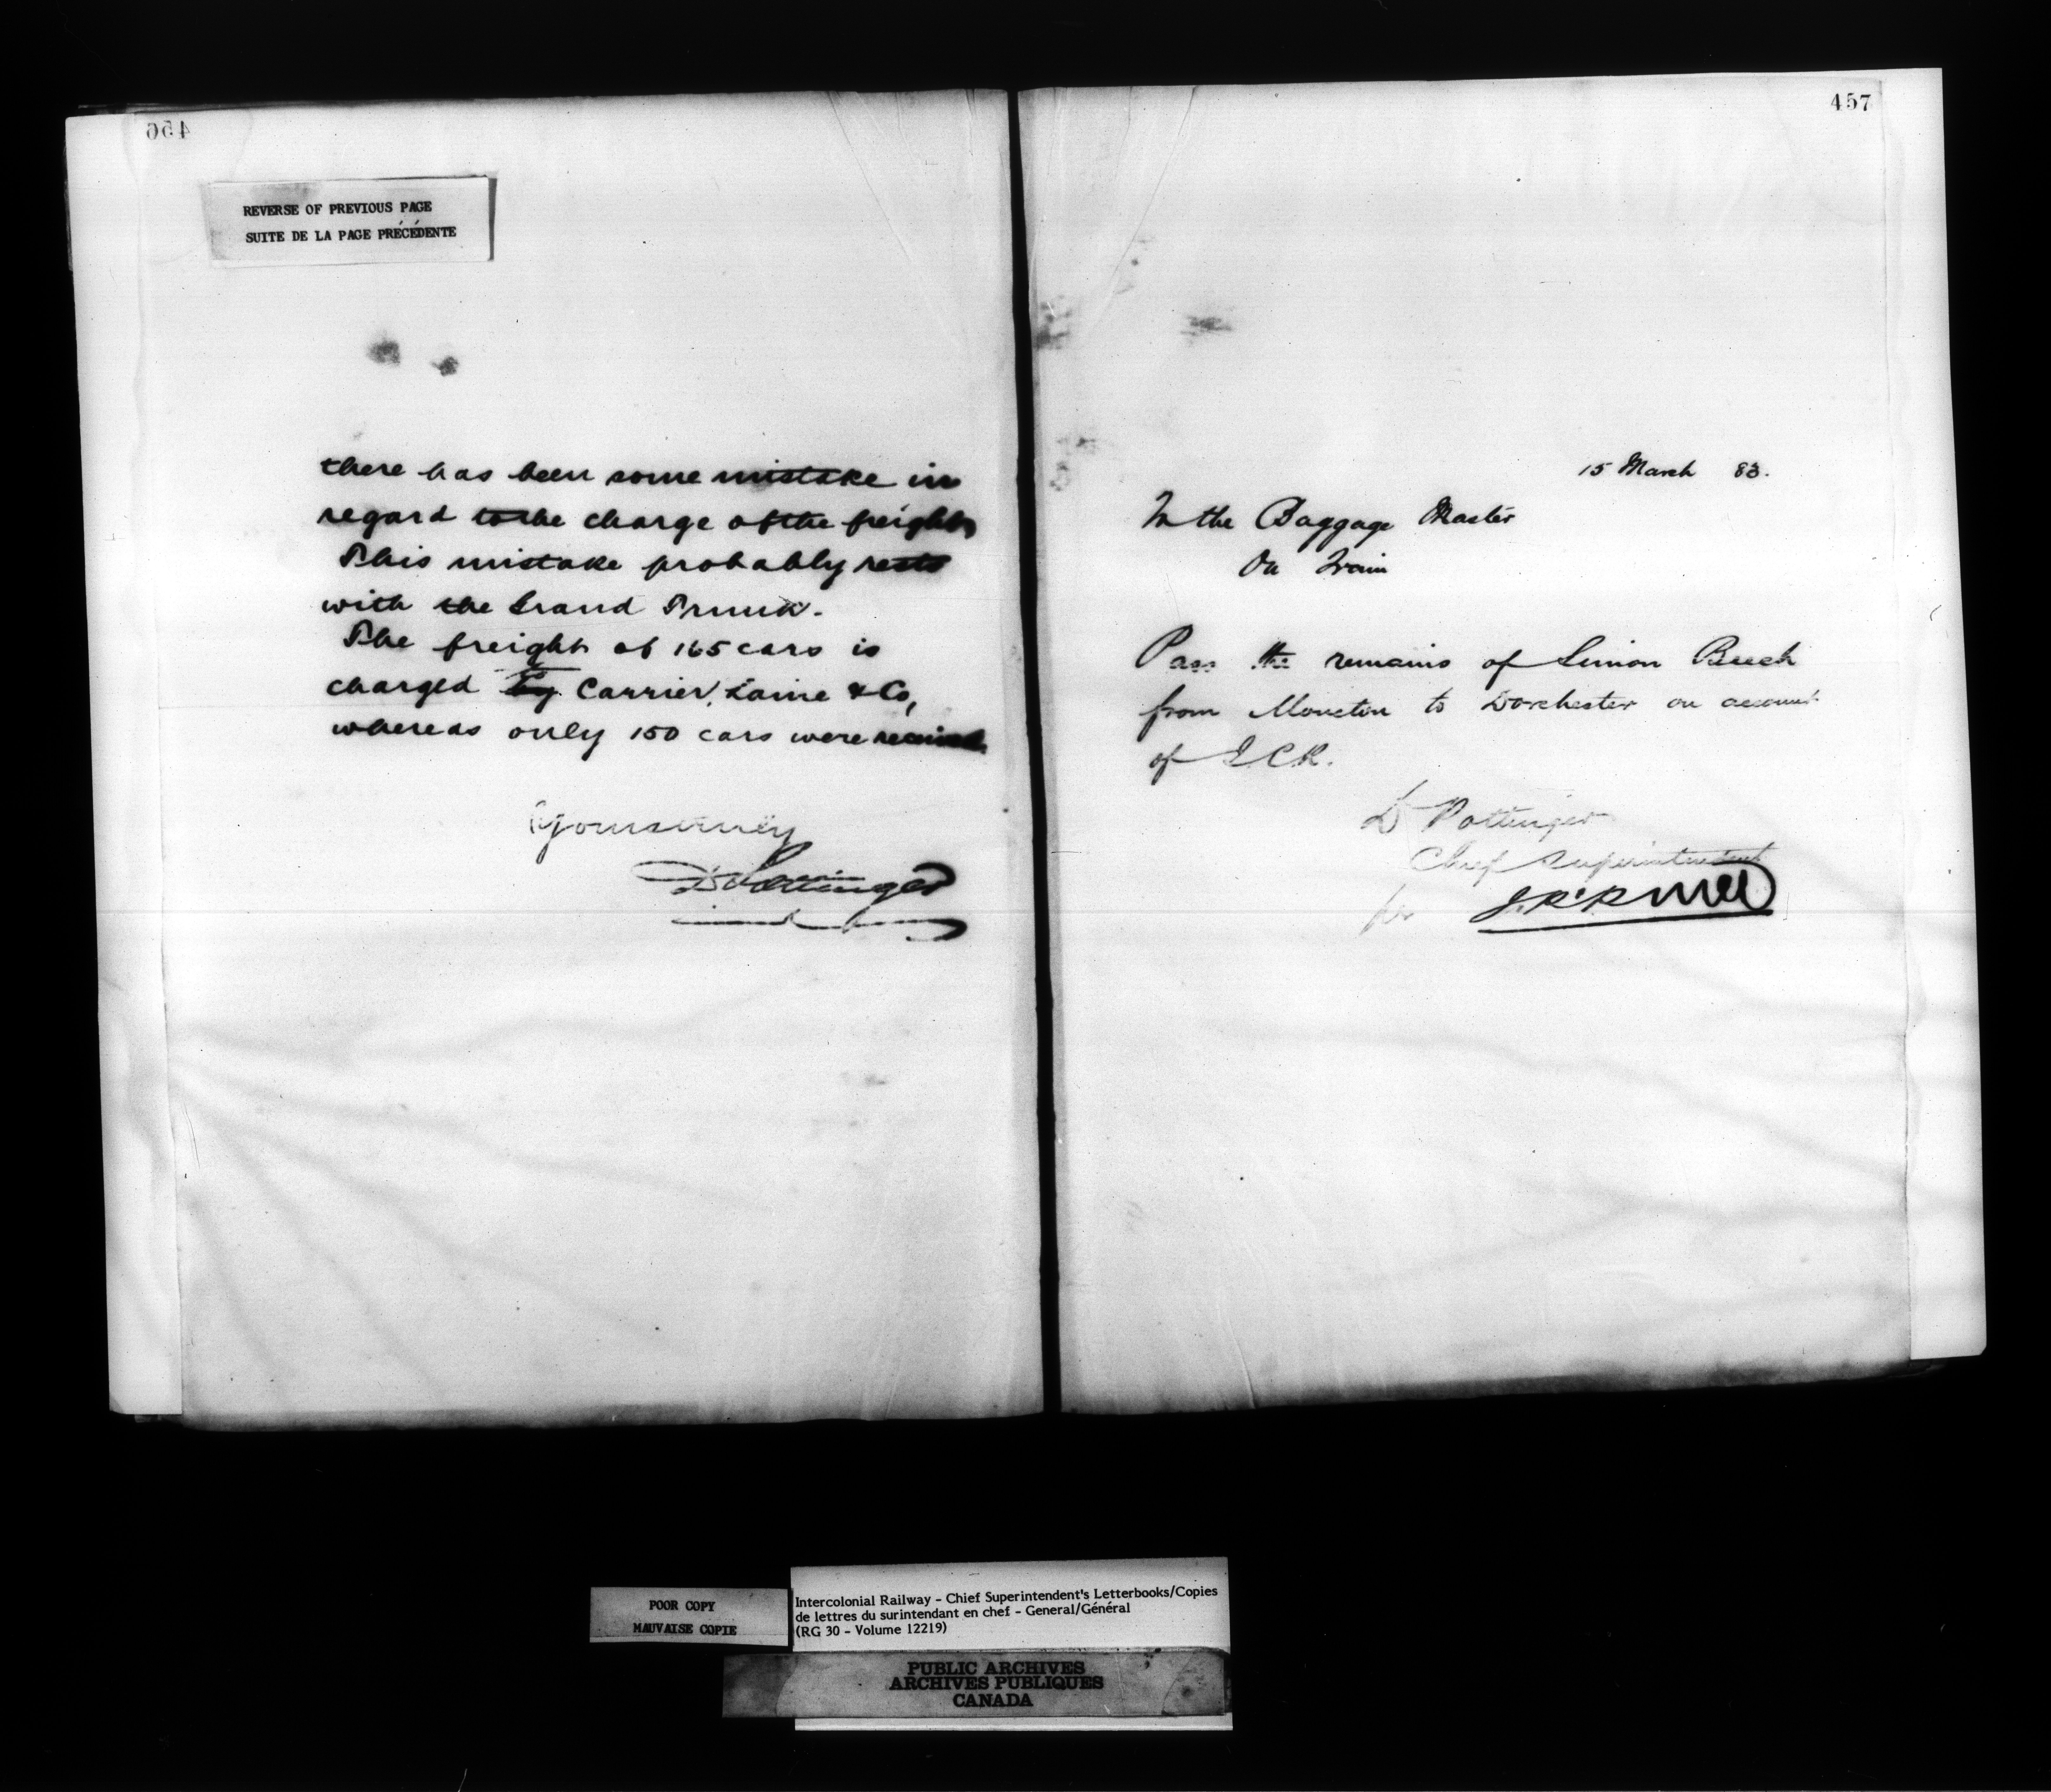 456
REVERSE OF PREVIOUS PAGE
SUITE DE LA PAGE PRÉCÉDENTE
there has been some mistake in
regard to the charge of the freight
This mistake probably rests
with the Grand Trunk.
The freight of 165 cars is
charged by Carrier, Laine & Co,
whereas only 150 cars were received
Yours truly
D Pottinger
457
15 March 83.
To the Baggage Master
On Train
Pass the remains of Simon Beech
from Moncton to Dorchester on account
of I.C.R.
D Pottinger
Chief Superintendent
per
POOR COPY
MAUVAISE COPIE
Intercolonial Railway - Chief Superintendent's Letterbooks/Copies
de lettres du surintendant en chef - General/Général
(RG 30 - Volume 12219)
PUBLIC ARCHIVES
ARCHIVES PUBLIQUES
CANADA